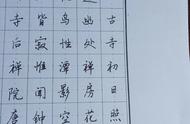 古寺初日照
幽处禅房花
鸟性潭影空
皆寂惟闻钟
寺后禅院唐